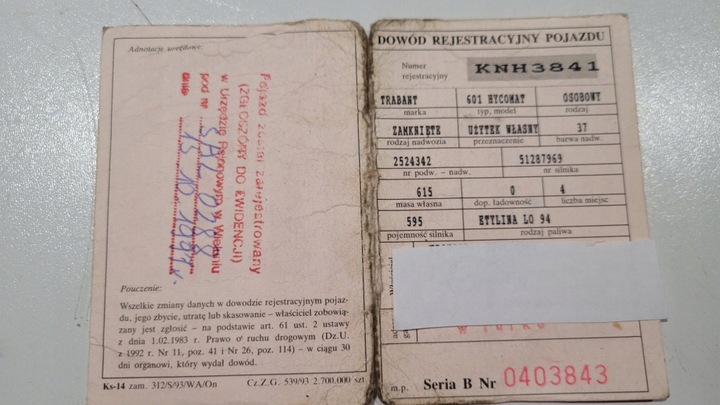 Adnotacje urzędowe:
Pojazd został zarejestrowany
(ZGŁOSZONY DO EWIDENCJI)
w Urzędzie Rejonowym w Wieluniu
pod nr
dnia 15 10 1997 r.
Pouczenie:
Wszelkie zmiany danych w dowodzie rejestracyjnym pojaz-
du, jego zbycie, utratę lub skasowanie – właściciel zobowią-
zany jest zgłosić – na podstawie art. 61 ust. 2 ustawy
z dnia 1.02.1983 r. Prawo o ruchu drogowym (Dz.U.
z 1992 r. Nr 11, poz. 41 i Nr 26, poz. 114) – w ciągu 30
dni organowi, który wydał dowód.
Ks-14 zam. 312/S/93/WA/On Cz.Z.G. 539/93 2.700.000 szt
DOWÓD REJESTRACYJNY POJAZDU
Numer
rejestracyjny KNH3841
TRABANT 601 HYCOMAT OSOBOWY
marka typ, model rodzaj
ZAMKNIĘTE UŻYTEK WŁASNY 37
rodzaj nadwozia przeznaczenie barwa nadw.
2524342 51287969
nr podw. – nadw. nr silnika
615 0 4
masa własna dop. ładowność liczba miejsc
595 ETYLINA LO 94
pojemność silnika rodzaj paliwa
m.p. Seria B Nr 0403843